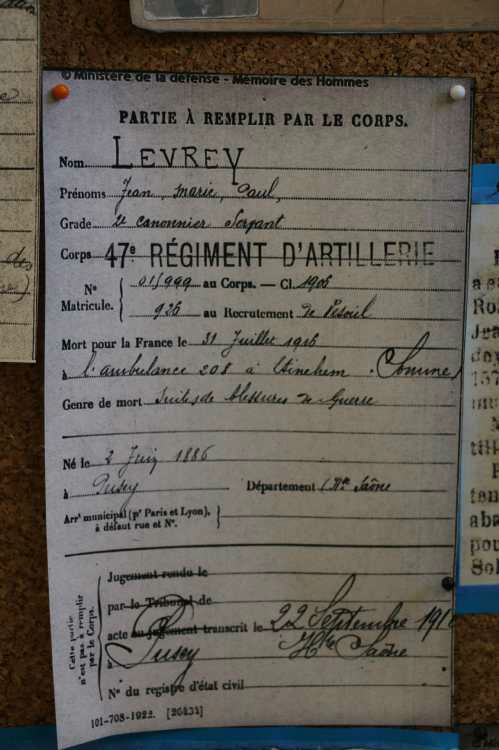 © Ministère de la défense - Mémoire des Hommes
PARTIE À REMPLIR PAR LE CORPS.
Nom LEVREY
Prénoms Jean, Marie, Paul,
Grade 2e canonnier Servant
Corps 47e RÉGIMENT D'ARTILLERIE
N° 01/999 au Corps. — Cl. 1906
Matricule. 926 au Recrutement de Vesoul
Mort pour la France le 31 Juillet 1916
à l'ambulance 208 à Etinehem (Somme)
Genre de mort Suites de blessures de Guerre
Né le 2 Juin 1886
à Pusey Département Hte Saône
Arrt municipal (pr Paris et Lyon), à défaut rue et N°.
Cette partie n'est pas à remplir par le Corps.
Jugement rendu le
par le Tribunal de
acte ou jugement transcrit le 22 Septembre 1916
à Pusey Hte Saône
N° du registre d'état civil
101-708-1922. [26434]
des